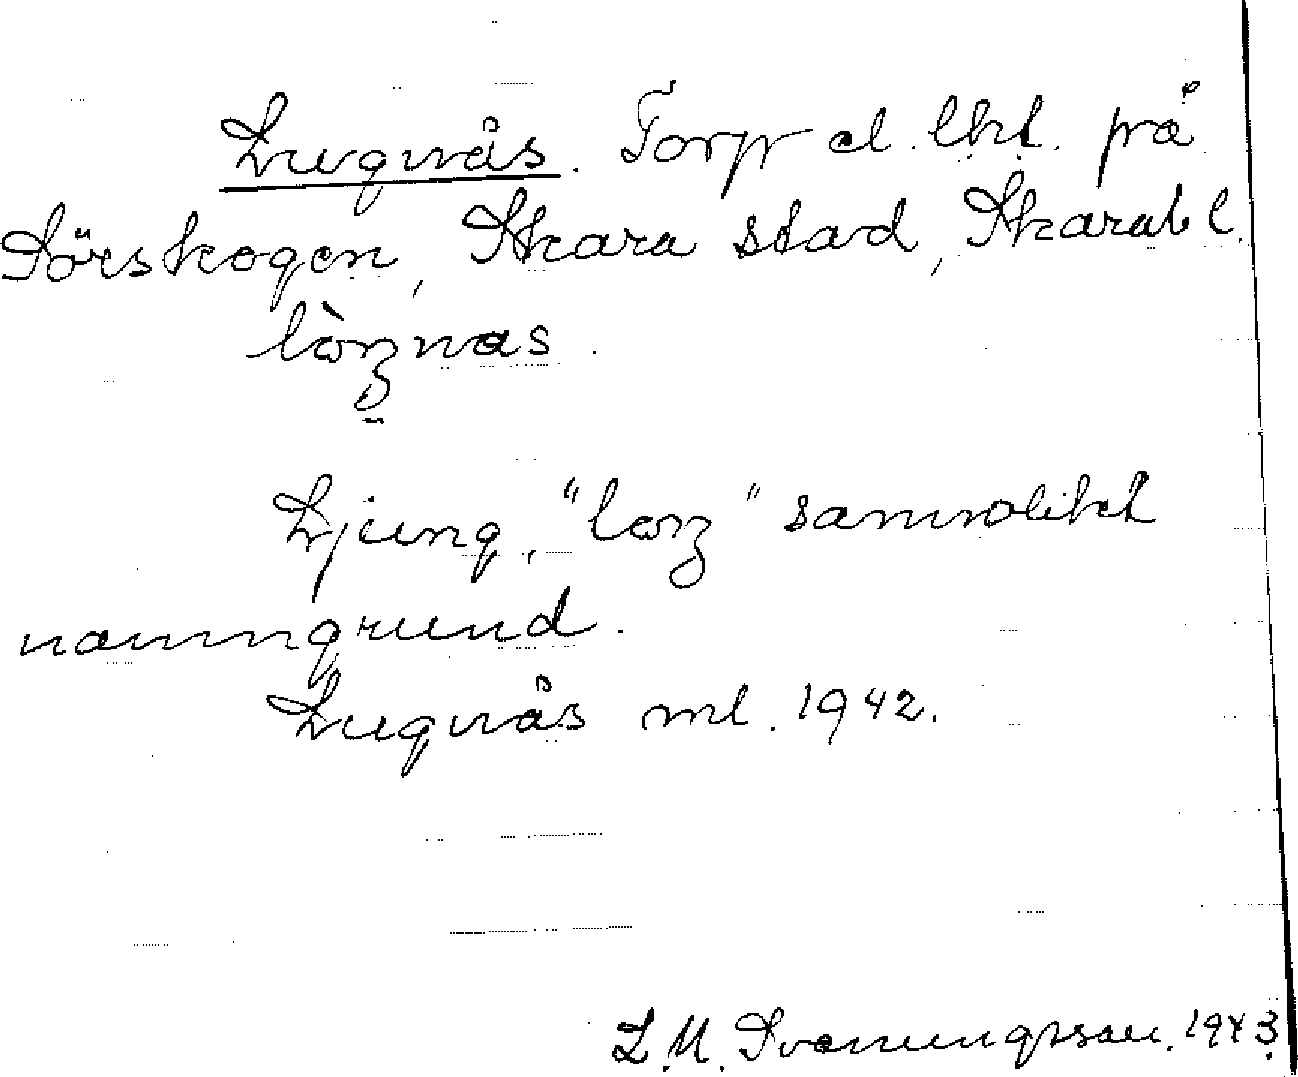 Lugnås. Torp el. lht. på
Sörskogen, Skara stad, Skarab l.
lòŋnas.
Ljung, "loŋ" sannolikt
namngrund.
Lugnås ml. 1942.
L. M. Svenungsson. 1943.